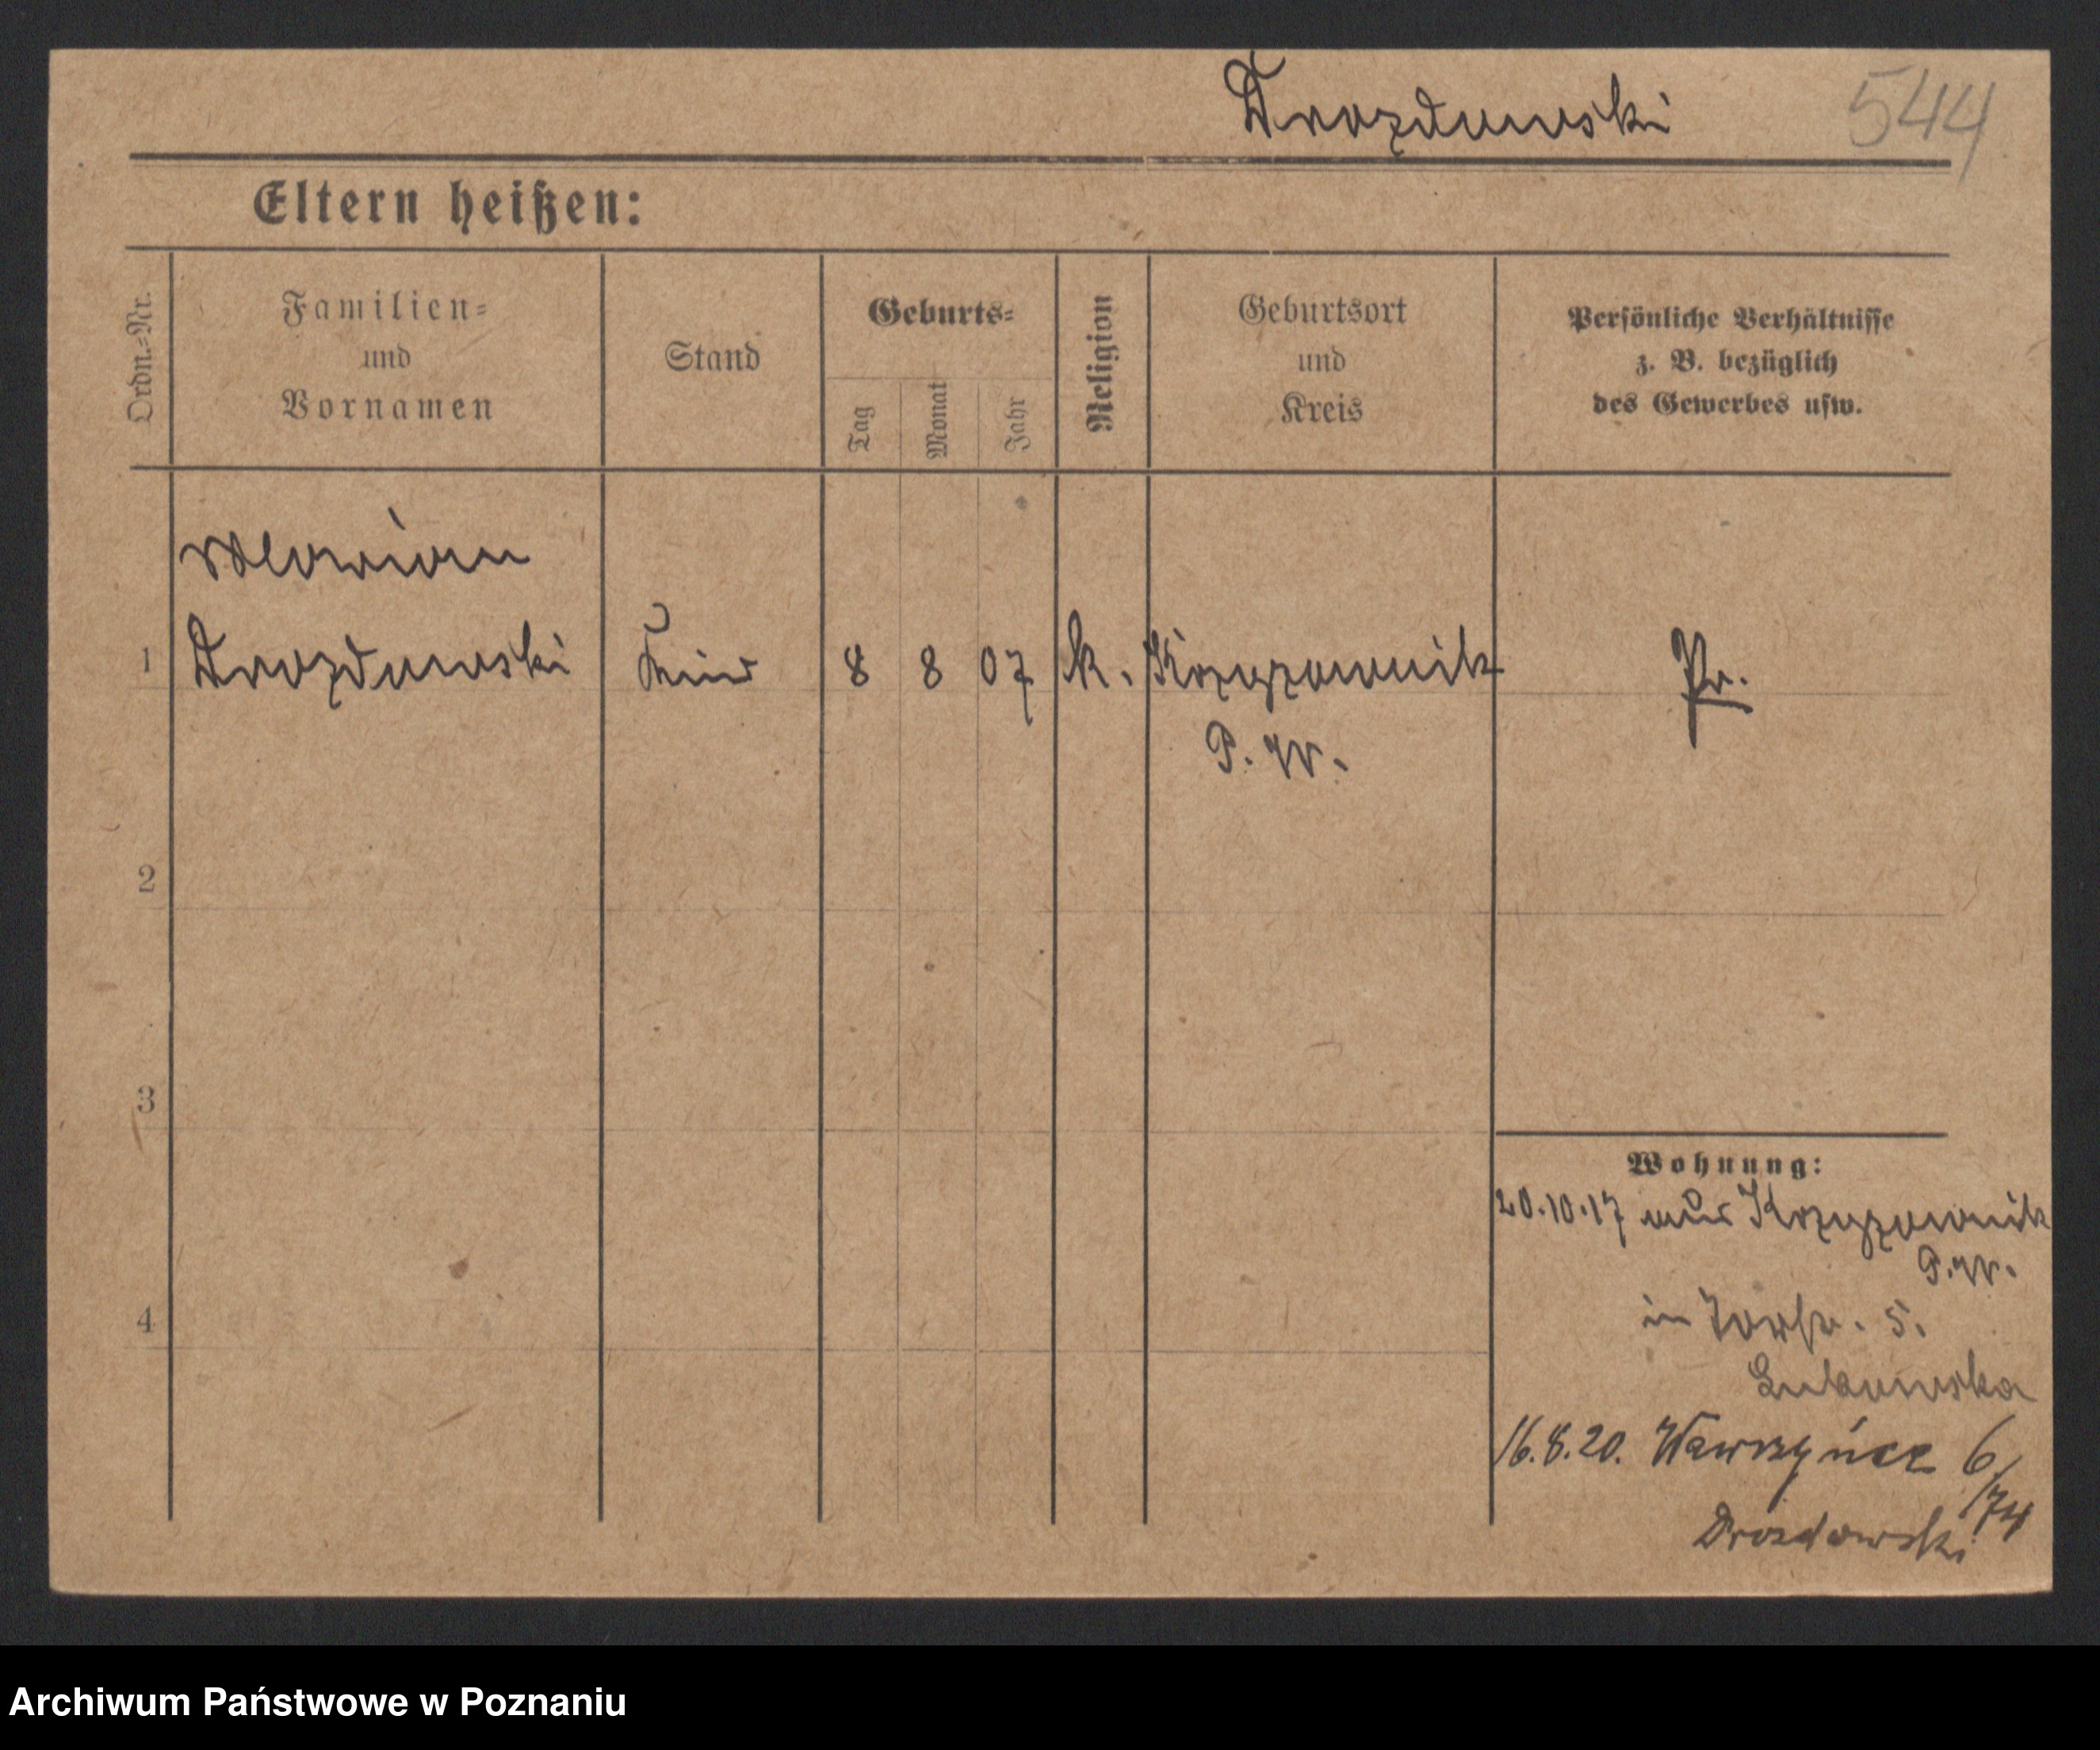 Drozdowski 544
Eltern heißen:
Ordn.-Nr.
Familien-
und
Vornamen
Stand
Geburts-
Tag
Monat
Jahr
Religion
Geburtsort
und
Kreis
Persönliche Verhältnisse
z. B. bezüglich
des Gewerbes usw.
Marian
1 Drozdowski Kind 8 8 07 k. Krzyzownik Pr.
P. W.
2
3
4
Wohnung:
20.10.17 aus Krzyzownik
P. W.
in 5.
Lukowska
16.8.20. Wawrzyńca 6/74
Drozdowski
Archiwum Państwowe w Poznaniu